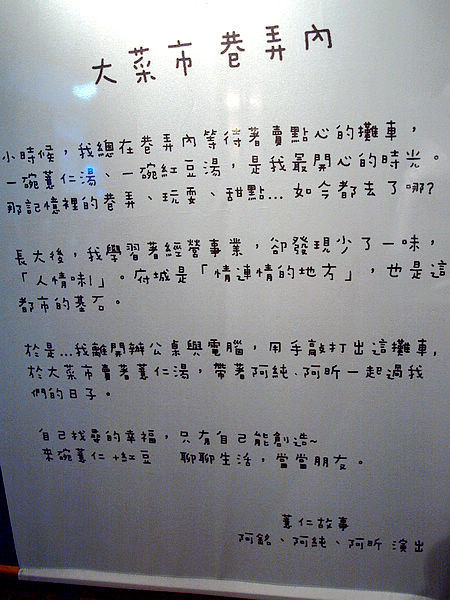 大菜市巷弄內
小時候，我總在巷弄內等待著賣點心的攤車，
一碗薏仁湯、一碗紅豆湯，是我最開心的時光。
那記憶裡的巷弄、玩耍、甜點...如今都去了哪?
長大後，我學習著經營事業，卻發現少了一味，
「人情味!」。府城是「情連情的地方」，也是這
都市的基石。
於是...我離開辦公桌與電腦，用手敲打出這攤車，
於大菜市賣著薏仁湯，帶著阿純、阿昕一起過我
們的日子。
自己找尋的幸福，只有自己能創造~
來碗薏仁+紅豆 聊聊生活，當當朋友。
薏仁故事
阿銘、阿純、阿昕 演出